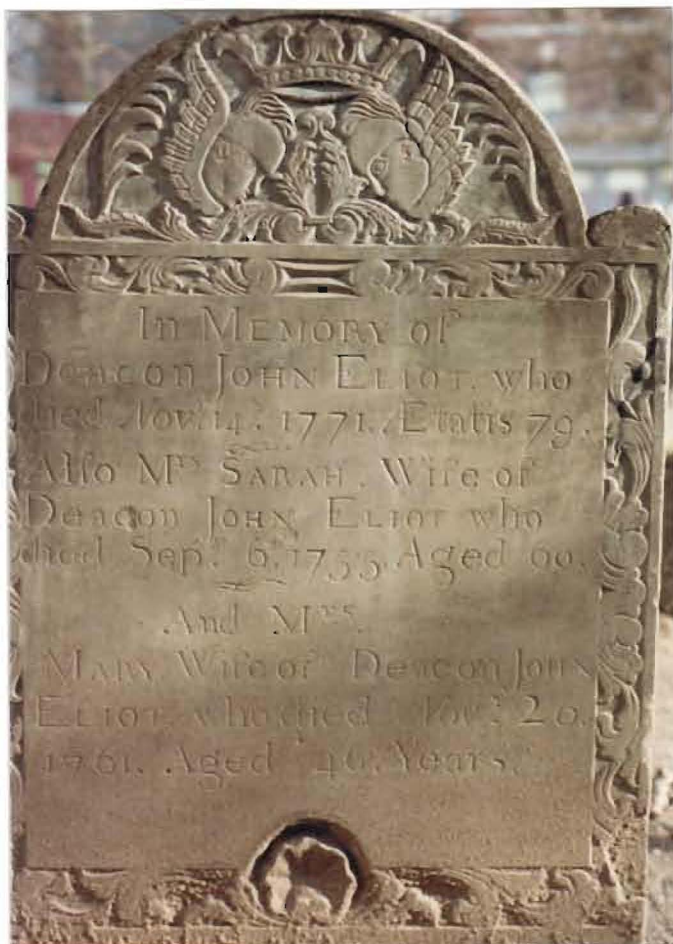 In MEMORY of
Deacon JOHN ELIOT. who
died Nov.ʳ 14.ᵗ 1771. Ætatis 79.
Alſo Mʳˢ SARAH. Wife of
Deacon JOHN ELIOT who
died Sep.ᵗ 6.ᵗ 1755. Aged 60.
And Mʳˢ.
MARY Wife of Deacon JOHN
ELIOT who died Nov.ʳ 20.
1761. Aged 46. Years.